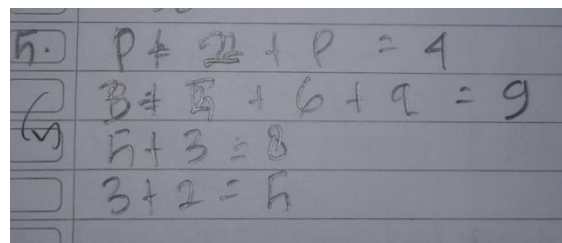 5. P + 2 + P = 4
3 + 5 + 6 + 9 = 9
5 + 3 = 8
3 + 2 = 5